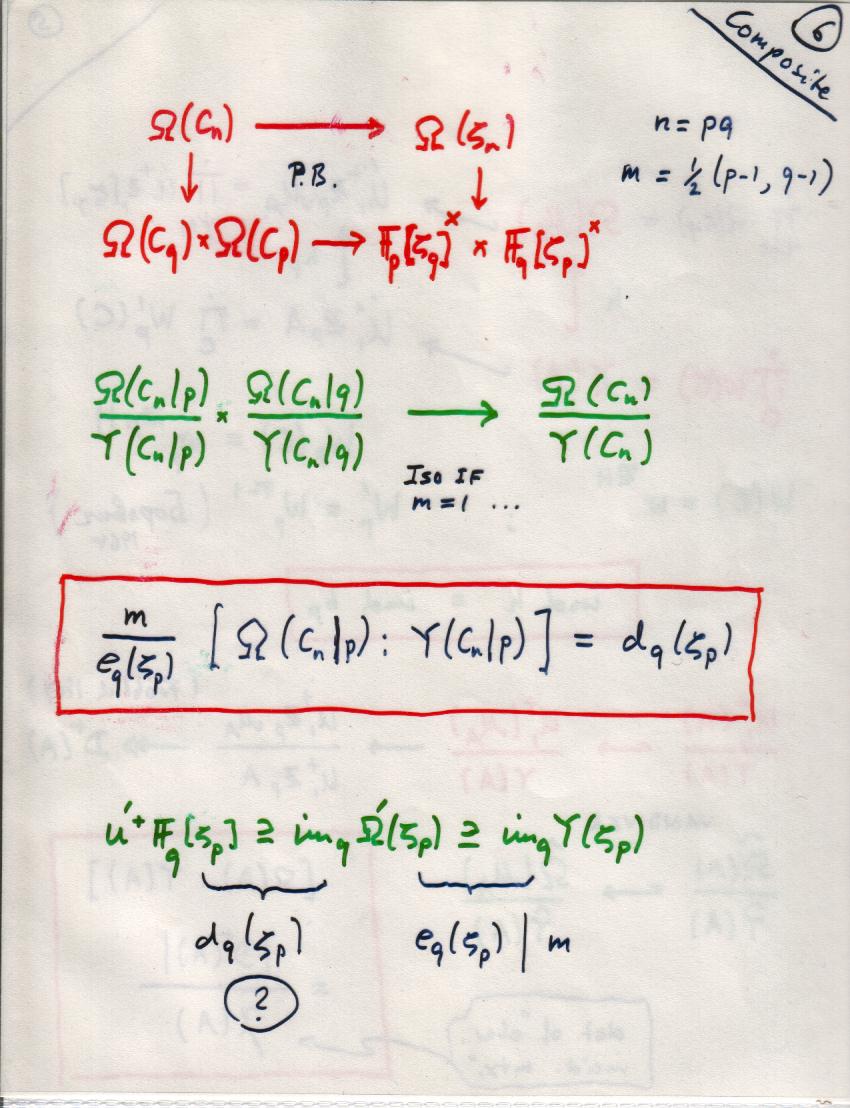 6
Composite
Ω(Cₙ) → Ω(ζₙ)
n = pq
P.B.
m = ½ (p-1, q-1)
↓ ↓
Ω(C_q) × Ω(C_p) → 𝔽_p[ζ_q]^× × 𝔽_q[ζ_p]^×
Ω(Cₙ|p) / Υ(Cₙ|p) × Ω(Cₙ|q) / Υ(Cₙ|q) → Ω(Cₙ) / Υ(Cₙ)
Iso IF
m=1 ...
m / e_q(ζ_p) [Ω(Cₙ|p) : Υ(Cₙ|p)] = d_q(ζ_p)
u'⁺ 𝔽_q[ζ_p] ≥ im_q Ω'(ζ_p) ≥ im_q Υ(ζ_p)
d_q(ζ_p) e_q(ζ_p) | m
?